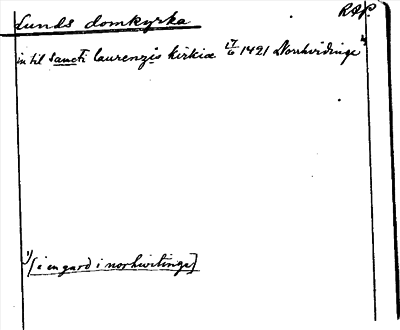 Lunds domkyrka RAP.
in til sancti laurenzis kirkiæ 17/6 1421 Norrhvidinge 1)
1) [i en gard i norhwitinge]